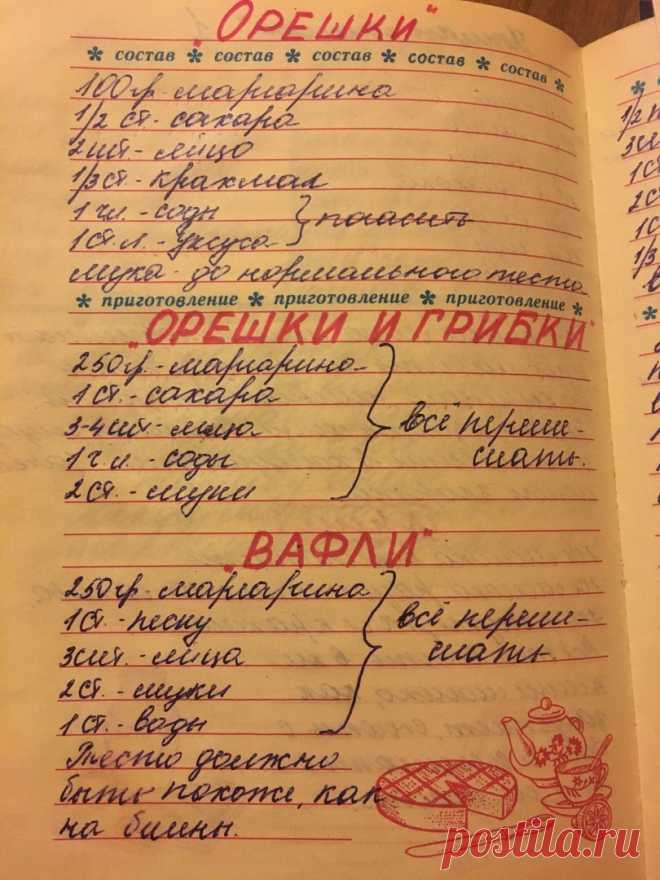 „ОРЕШКИ"
* состав * состав * состав * состав * состав *
100гр. маргарина
1/2 ст. сахара
2 шт. - яйцо
1/3 ст. крахмал
1 ч.л. - соды } погасить
1 ст. л. - уксуса
мука - до нормального теста
* приготовление * приготовление * приготовление *
„ОРЕШКИ И ГРИБКИ"
250гр. - маргарина
1 ст. - сахара
3-4 шт. - яйца } всё переме-
1 ч.л. - соды шать.
2 ст. - муки
„ВАФЛИ"
250гр. - маргарина
1 ст. - песку } всё переме-
3 шт. - яйца шать.
2 ст. - муки
1 ст. - воды
Тесто должно
быть похоже, как
на блины.
1/2
1
1/3
postila.ru